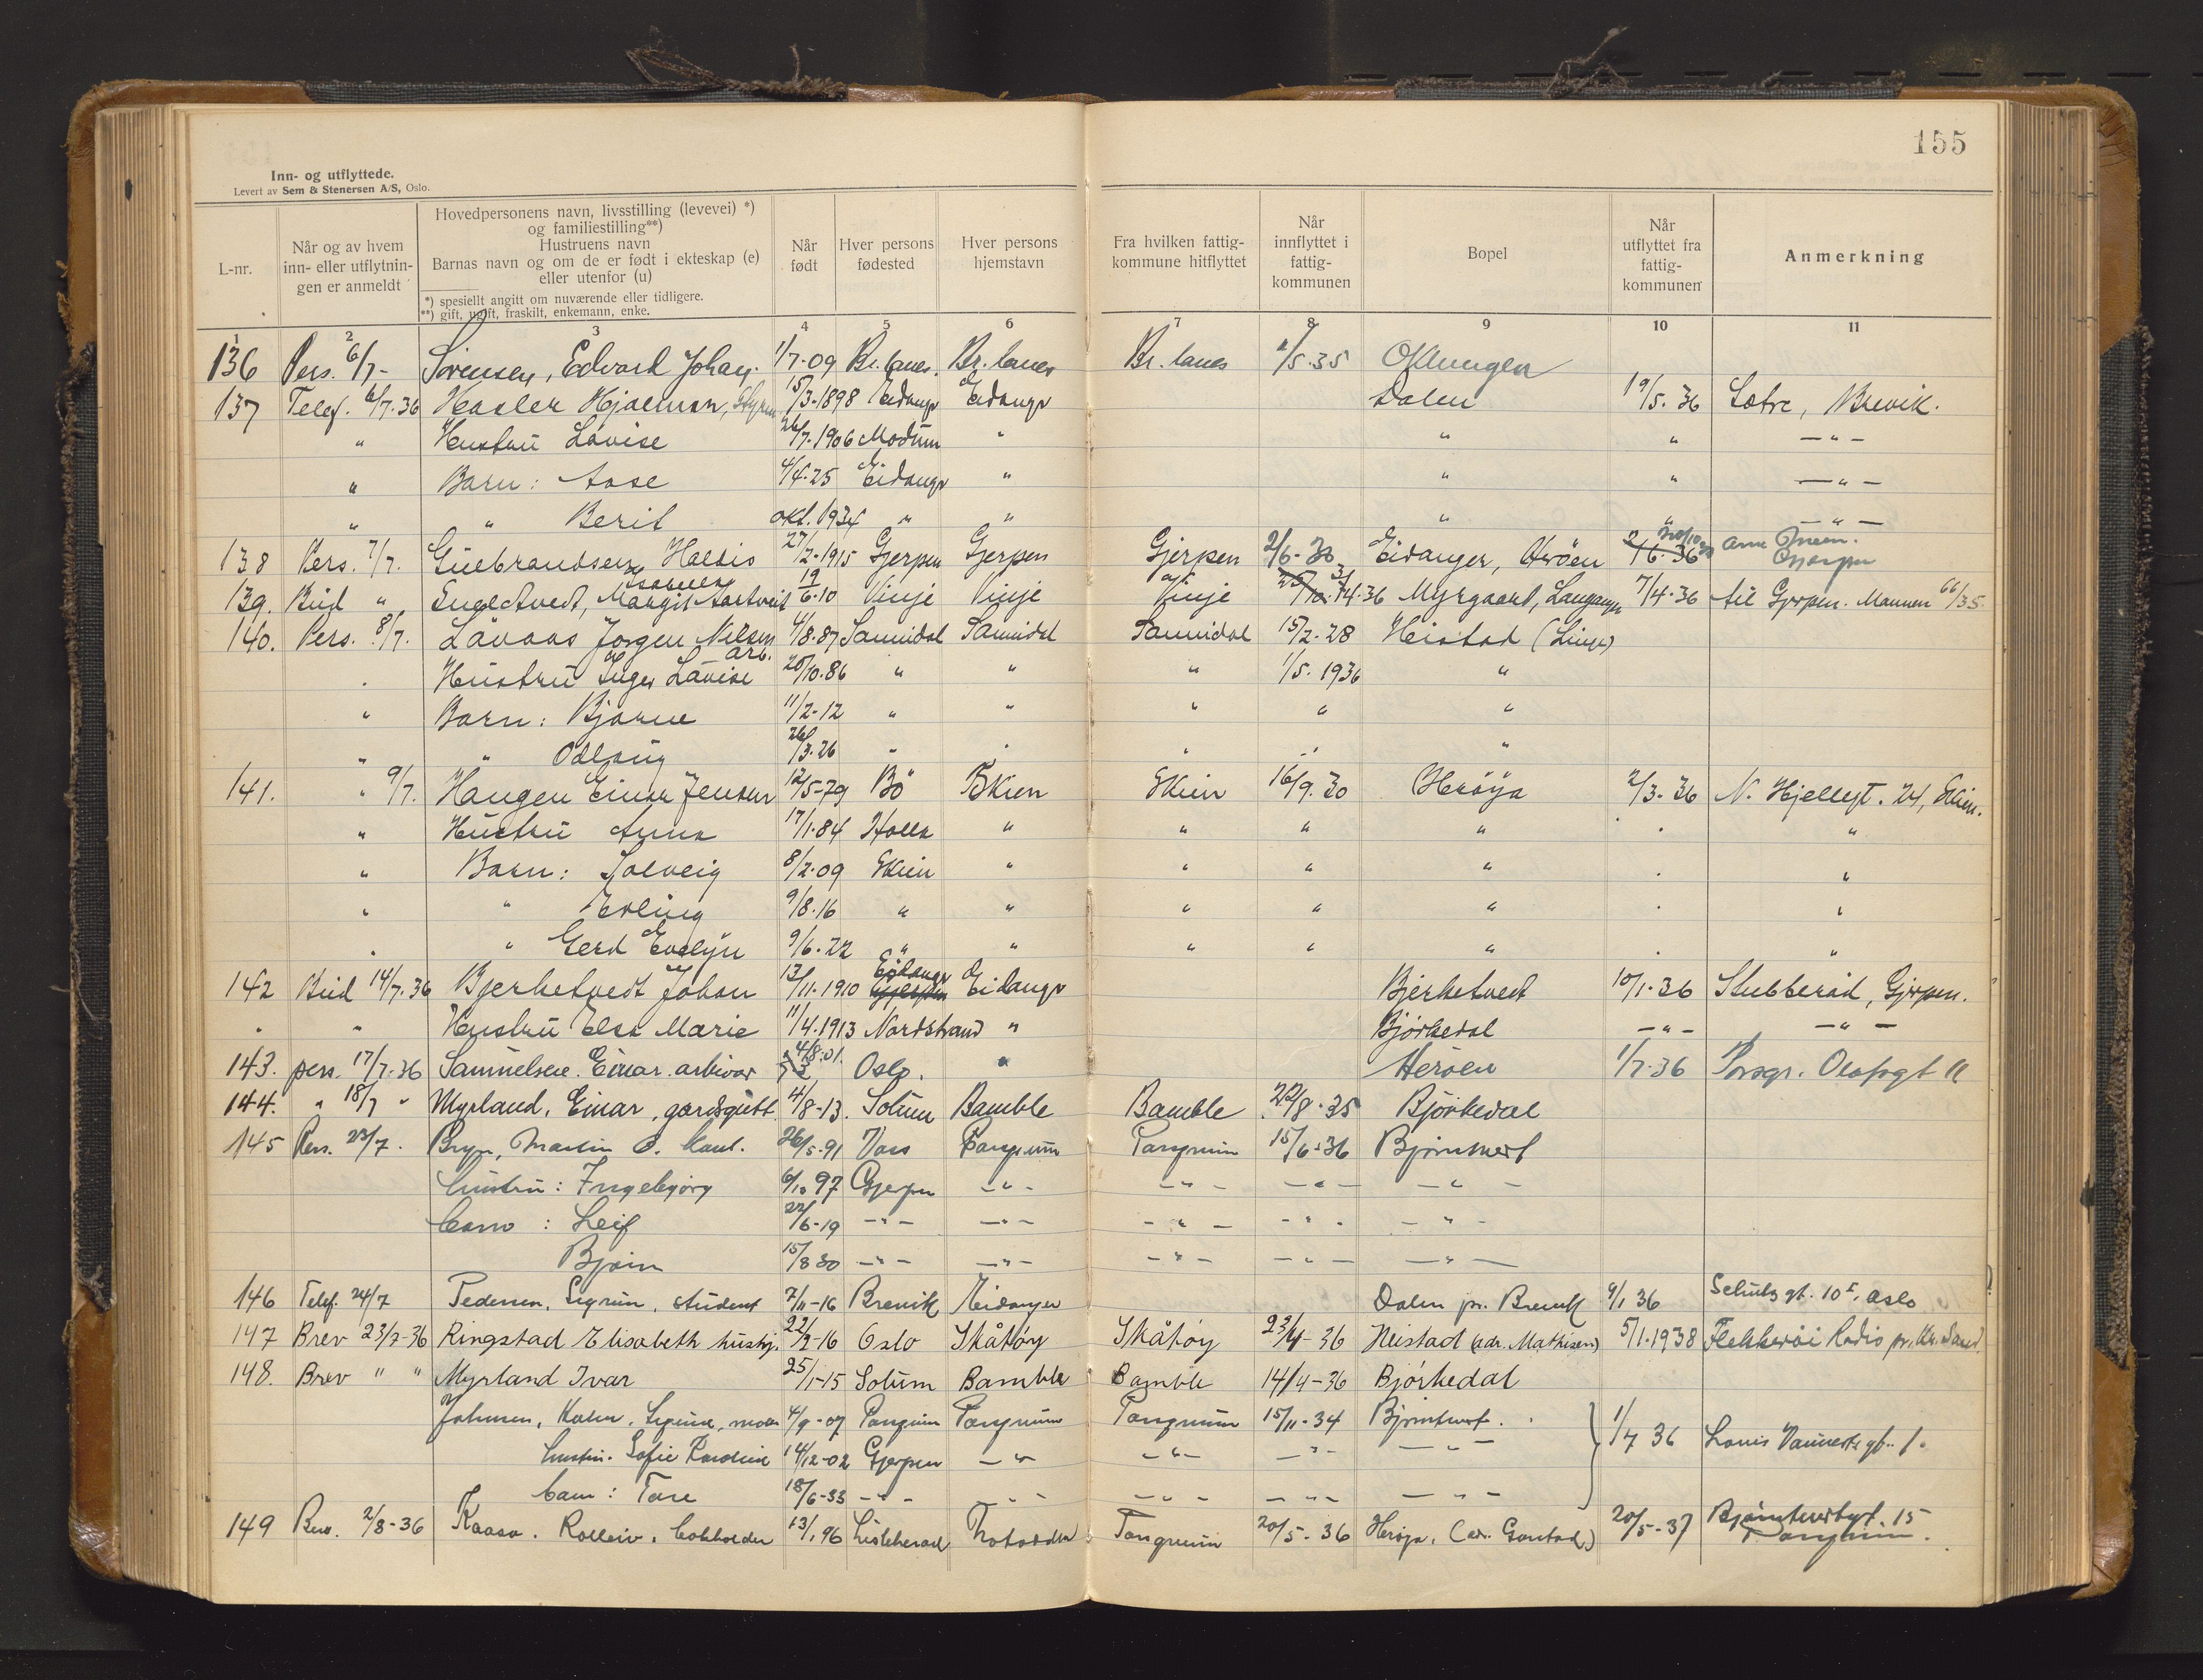 155
Inn- og utflyttede.
Levert av Sem & Stenersen A/S, Oslo.
L-nr. | Når og av hvem inn- eller utflytningen er anmeldt | Hovedpersonens navn, livsstilling (levevei) *) og familiestilling**) Hustruens navn Barnas navn og om de er født i ekteskap (e) eller utenfor (u) *) spesiellt angitt om nuværende eller tidligere. **) gift, ugift, fraskilt, enkemann, enke. | Når født | Hver persons fødested | Hver persons hjemstavn | Fra hvilken fattigkommune hitflyttet | Når innflyttet i fattigkommunen | Bopel | Når utflyttet fra fattigkommunen | Anmerkning
1 2 3 4 5 6 7 8 9 10 11
136 Pers. 6/7- Sørensen, Edvard Johan. 1/7-09 Br.lanes. Br.lanes Br.lanes 1/5.35
137 Telef. 6/7.36 Hasler Hjalmar, 15/3-1898 Eidangr Eidangr Dalen 19/5.36 Brevik.
" Hustru Lovise 26/7.1906 Modum " " " -"-
" Barn: Aase 4/4-25 Eidangr " " " -"-
" " Berit okt. 1934 " " " " -"-
138 Pers. 7/7. Gulbrandsen, Haldis 27/2-1915 Gjerpen Gjerpen Gjerpen 2/6-30 Eidanger, Herøen 2/6-36 Gjerpen
139. Bud " Margit 19/6-10 Vinje Vinje Vinje 14.36 Myrgaard, Langangen 7/4-36 til Gjerpen. Mannen 66/35.
140. Pers. 8/7. Låvaas Jørgen Nilsen arb. 4/8.87 Sannidal Sannidal Sannidal 15/2-28 Heistad
. Hustru Inger Lovise 20/10.86 " " " 1/5.1936 "
" Barn: Bjarne 11/2-12 " " " " "
" " Odlaug 26/3.26 " " " " "
141. " 9/7. Haugen Einar Jensen 12/5-79 Bø Skien Skien 16/9.30 Herøya 2/3-36 N. Hjellegt. 24, Skien.
" Hustru Anna 17/1.84 Holla " " " " . "
" Barn: Solveig 8/2-09 Skien " " " " . "
" " Erling 9/8.16 " " " " " . "
. " Gerd Evelyn 9/6.22 " " " " " . "
142 Bud 14/7.36 Bjerketvedt Johan 13/11.1910 Gjerpen Eidangr Eidangr Bjerketvedt 10/1-36 Stubberød, Gjerpen.
" " Hustru Else Marie 11/4.1913 Nordstrand " Bjørkedal -"- -"-
143. pers. 17/7-36 Samuelsen. Einar. arkivar 4/8.01. Oslo. " Herøen 1/7-36 Porsgr. Olafsgt 11
144. " 18/7 " Myrland, Einar, gardsgutt 4/8-13. Solum Bamble Bamble 22/8.35 Bjørkedal
145 Pers. 23/7. Bryn, Martin O. 26/5-91 Voss Porsgrunn Porsgrunn 15/6-36 Bjørntvedt
hustru: Ingebjørg 6/10 97 Gjerpen -"- -"- -"- -"-
barn: Leif 22/6-19 -"- -"- -"- -"- -"-
Bjørn 15/8 30 -"- -"- -"- -"- -"-
146 Telef. 24/7 Pedersen, Sigrun, student 7/11-16 Brevik Eidanger Dalen pr. Brevik 9/1 36 Schultz gt. 10 I, Oslo
147 Brev 23/7-36 Ringstad Elisabeth hushj. 22/2-16 Oslo Skåtøy Skåtøy 23/4-36 Heistad (adr. Mathisen) 5/1.1938 Flekkerøi Radio pr. Kr.Sand.
148. Brev " " Myrland Ivar 25/1-15 Solum Bamble Bamble 14/4-36 Bjørkedal
Johnsen, 4/9-07 Porsgrunn Porsgrunn Porsgrunn 15/11-34 Bjørntvedt. 1/7 36
hustru. Sofie 14/12-02 Gjerpen -"- -"- -"- -"-
barn: Tore 18/6-33 -"- -"- -"- -"- -"-
149 Brev. 2/8-36 Kaasa. Rolleiv, bokholder 13/1 96 Lisleherad Notodden Porsgrunn 20/5-36 Herøya. 20/5-37 Bjørntvedtgt. 15 Porsgrunn.